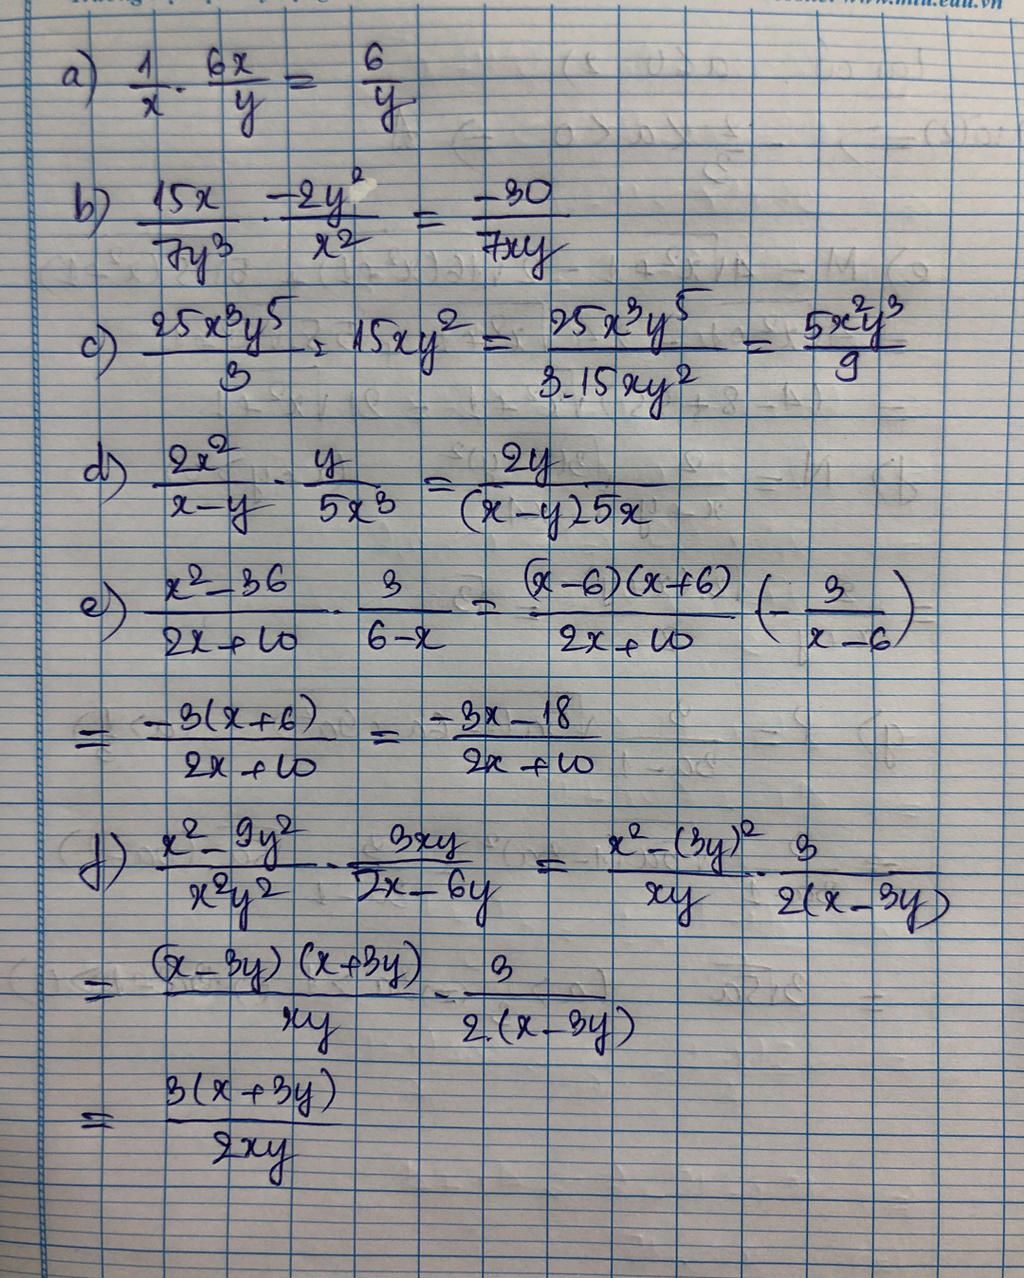 www.mtu.edu.vn
a) 1/x · 6x/y = 6/y
b) 15x/7y³ · -2y²/x² = -30/7xy
c) 25x³y⁵/3 : 15xy² = 25x³y⁵/3.15xy² = 5x²y³/9
d) 2x²/x-y · y/5x³ = 2y/(x-y)5x
e) x²-36/2x+10 · 3/6-x = (x-6)(x+6)/2x+10 (-3/x-6)
= -3(x+6)/2x+10 = -3x-18/2x+10
f) x²-9y²/x²y² · 3xy/2x-6y = x²-(3y)²/xy · 3/2(x-3y)
= (x-3y)(x+3y)/xy · 3/2.(x-3y)
= 3(x+3y)/2xy